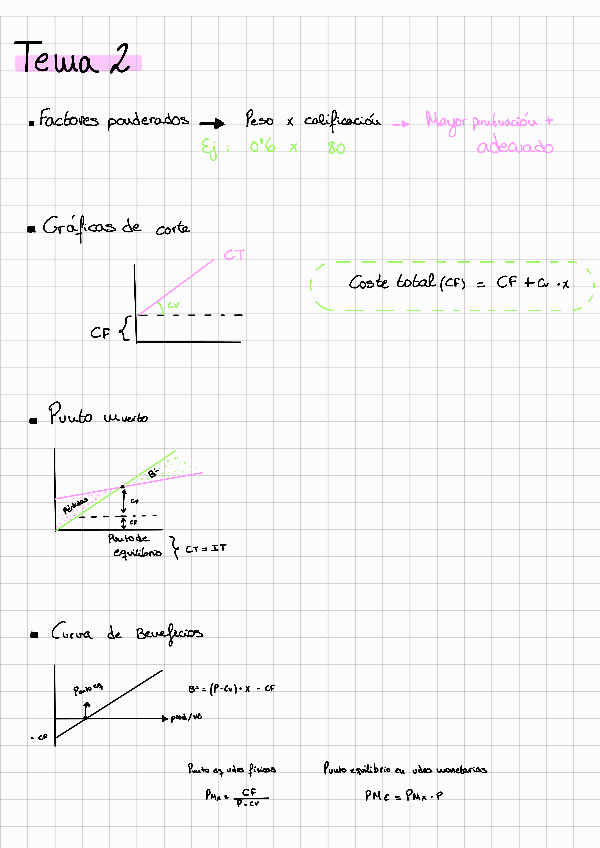 Tema 2
▪ Factores ponderados → Peso x calificación → Mayor puntuación +
adecuado
Ej: 0'6 x 80
▪ Gráficas de corte
CT
CV
CF
Coste total (CF) = CF + Cv · x
▪ Punto muerto
Bº
Pérdidas
CV
CF
Punto de
equilibrio } CT = IT
▪ Curva de Beneficios
Punto eq
Bº = (P - Cv) · x - CF
prod/vo
- CF
Punto eq udes físicas
PMx = CF / P - CV
Punto equilibrio en udes monetarias
PM€ = PMx · P